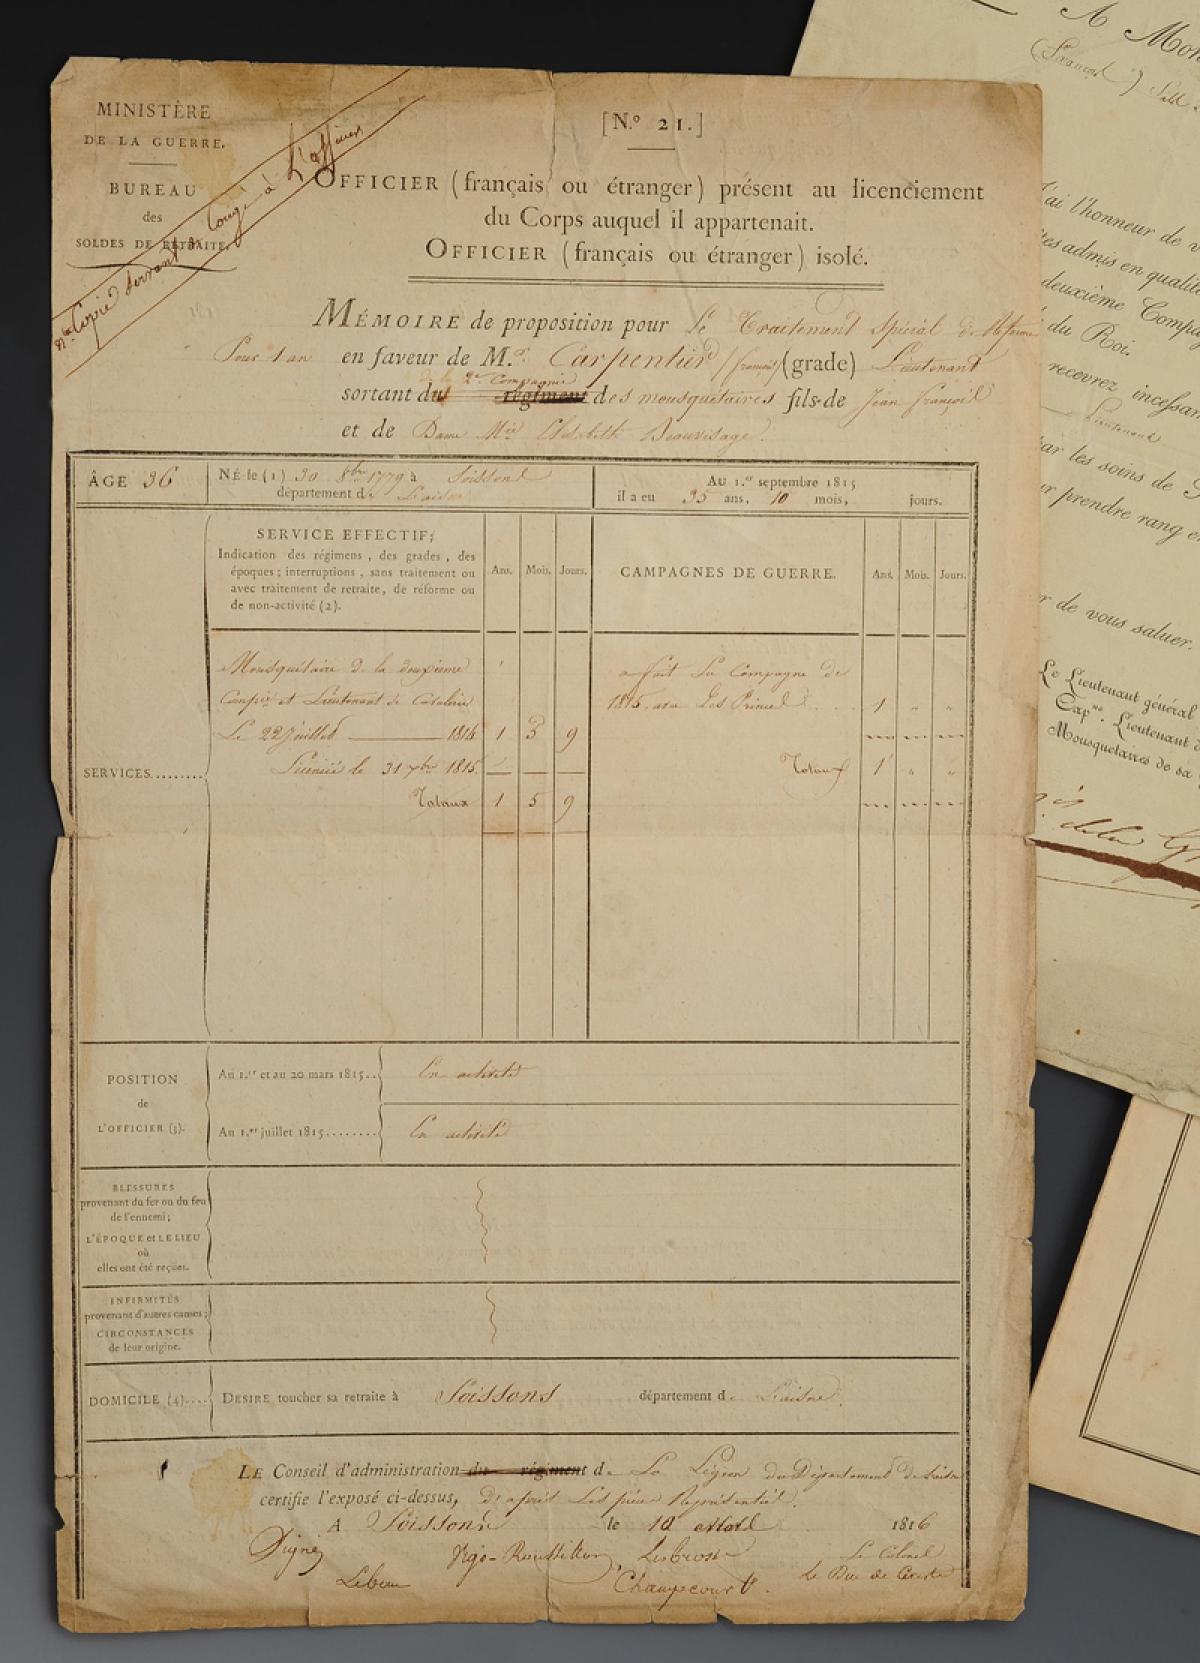 MINISTÈRE
DE LA GUERRE.
BUREAU
des
SOLDES DE RETRAITE.
Copie servant de Congé à L'officier
[N.º 21.]
OFFICIER (français ou étranger) présent au licenciement
du Corps auquel il appartenait.
OFFICIER (français ou étranger) isolé.
MÉMOIRE de proposition pour Le Traitement Spécial de Réforme
Pour 1 an en faveur de M.r Carpentier (françois) (grade) Lieutenant
2e Compagnie
sortant du régiment des mousquetaires fils de Jean françois
et de Dame Mie Elisabeth Beauvisage.
ÂGE 36
NÉ le (1) 30 8bre 1779 à Soissons
département de L'aisne
AU 1.er septembre 1815
il a eu 35 ans, 10 mois, jours.
SERVICE EFFECTIF;
Indication des régimens, des grades, des
époques; interruptions, sans traitement ou
avec traitement de retraite, de réforme ou
de non-activité (2).
Ans. Mois. Jours.
CAMPAGNES DE GUERRE.
Ans. Mois. Jours.
SERVICES.........
Mousquetaire de la deuxième
Compie et Lieutenant de Cavalerie
Le 22 Juillet 1814 1 5 9
Licencié le 31 xbre 1815
Totaux 1 5 9
a fait La Campagne de
1815 avec Les Princes 1 " "
Totaux 1 " "
POSITION
de
L'OFFICIER (3).
Au 1.er et au 20 mars 1815.. En activité
Au 1.er juillet 1815........ En activité
BLESSURES
provenant du fer ou du feu
de l'ennemi;
L'ÉPOQUE et LE LIEU
où
elles ont été reçues.
INFIRMITÉS
provenant d'autres causes;
CIRCONSTANCES
de leur origine.
DOMICILE (4)....
DESIRE toucher sa retraite à Soissons département de L'aisne.
LE Conseil d'administration du régiment de La Légion du Département de L'aisne
certifie l'exposé ci-dessus, d'après Les pièces Représentées.
A Soissons le 10 1816
Signé Vigo-Roussillon Le Colonel
Champcourt.
A Mon
(françois)
J'ai l'honneur de v
êtes admis en qualité
deuxième Compag
du Roi.
recevrez incessam
Lieutenant
par les soins de
ur prendre rang e
r de vous saluer.
Le Lieutenant général
Cap.ne Lieutenant d
Mousquetaires de sa